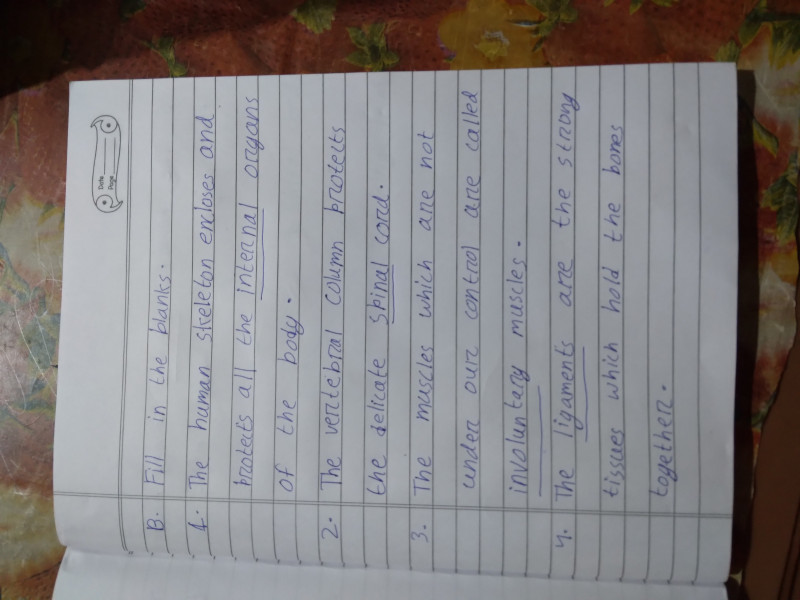 Date
Page
B. Fill in the blanks.
1. The human skeleton encloses and
protects all the internal organs
of the body.
2. The vertebral column protects
the delicate spinal cord.
3. The muscles which are not
under our control are called
involuntary muscles.
4. The ligaments are the strong
tissues which hold the bones
together.